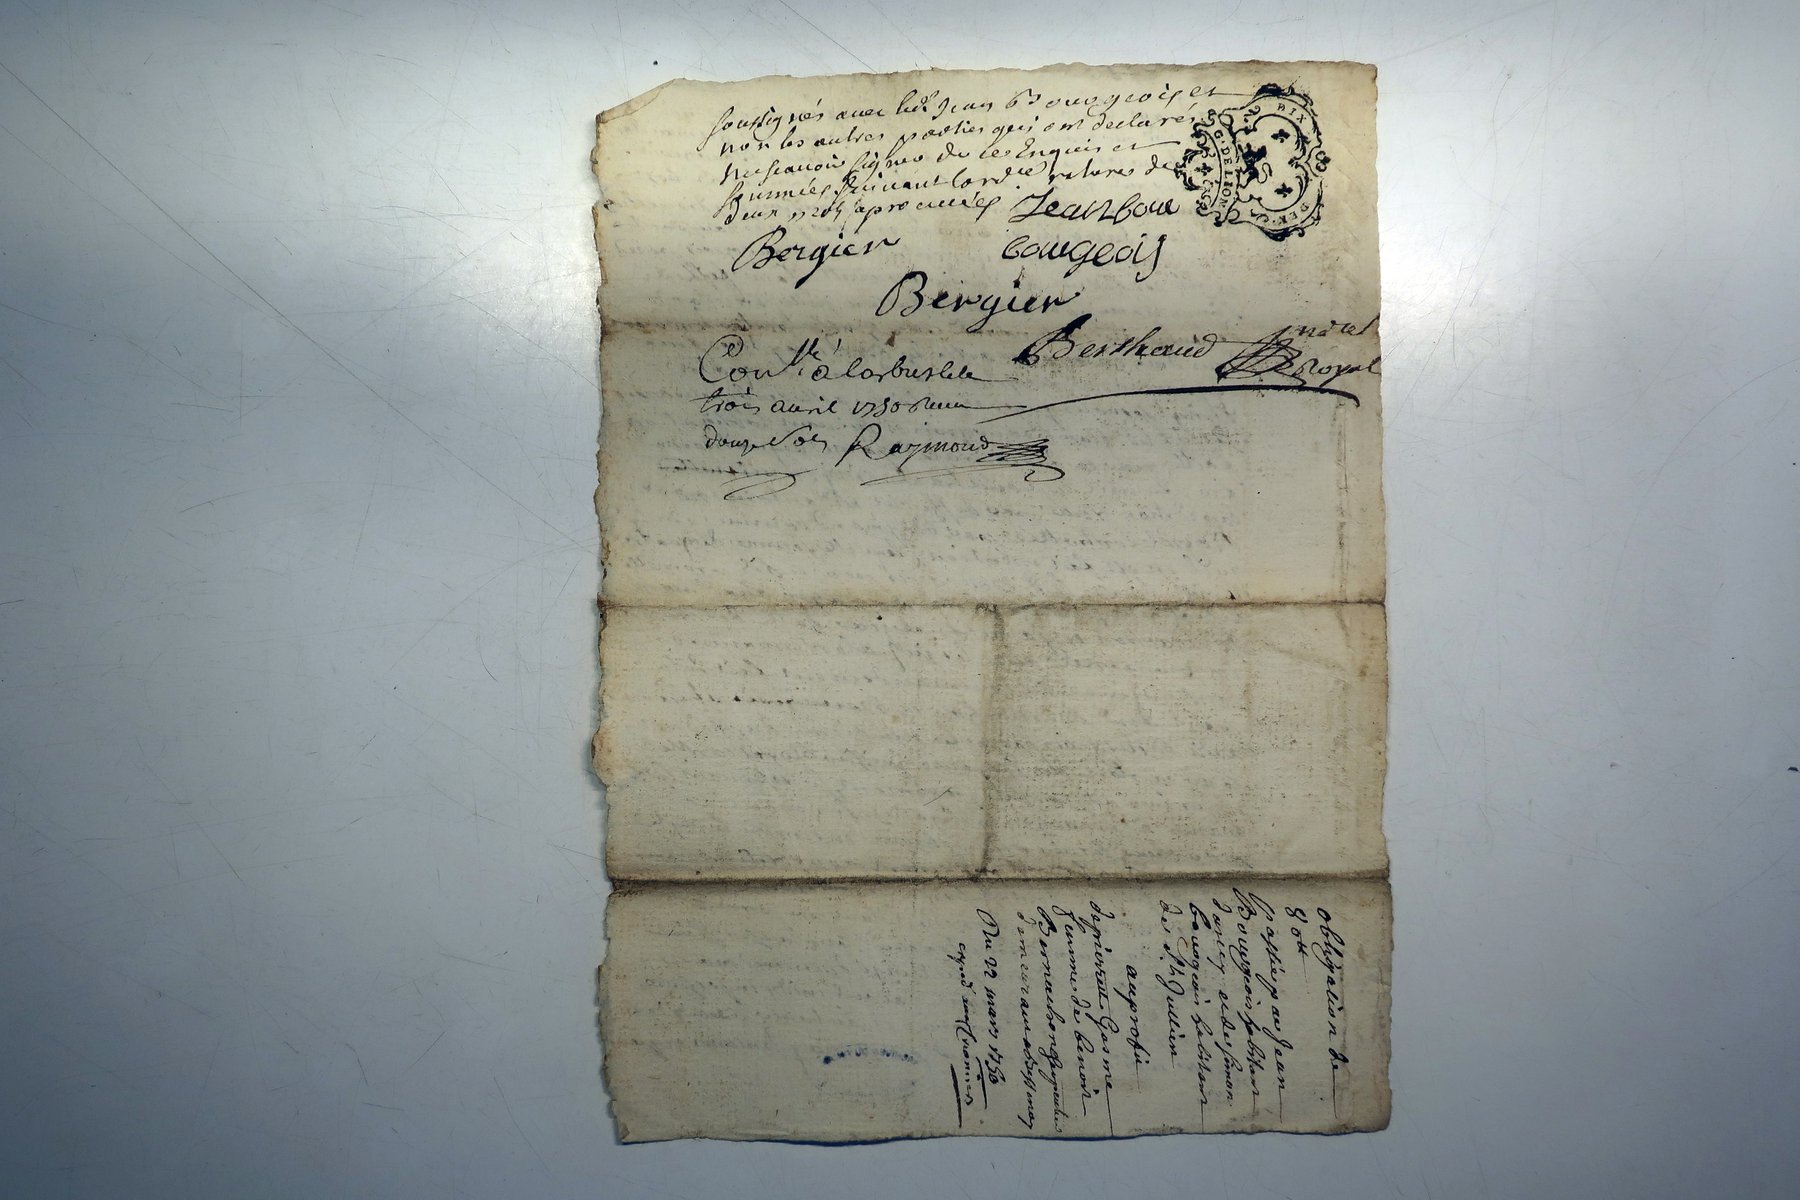 soussignés avec led. Jean Bourgeois et
non les autres parties qui ont declarés
ne scavoir signer de ce Enquis et
sommés suivant lordre ratures de
deux mots aprouvées Jean bour
Bergier bourgeois
Bergier
Berthaud notre royal
Conlle à larbresle le
trois avril 1750 Reçu
douze sols Raymond
DIX
DER.
G. DE LION
obligation de
8
passée par Jean
Bourgeois habitant
et de simon
bourgeois habitant
de St Jullien
au profit
de pierrette Gasme
femme de benoit
demeurant a Bessenay
Du 22 mars 1750